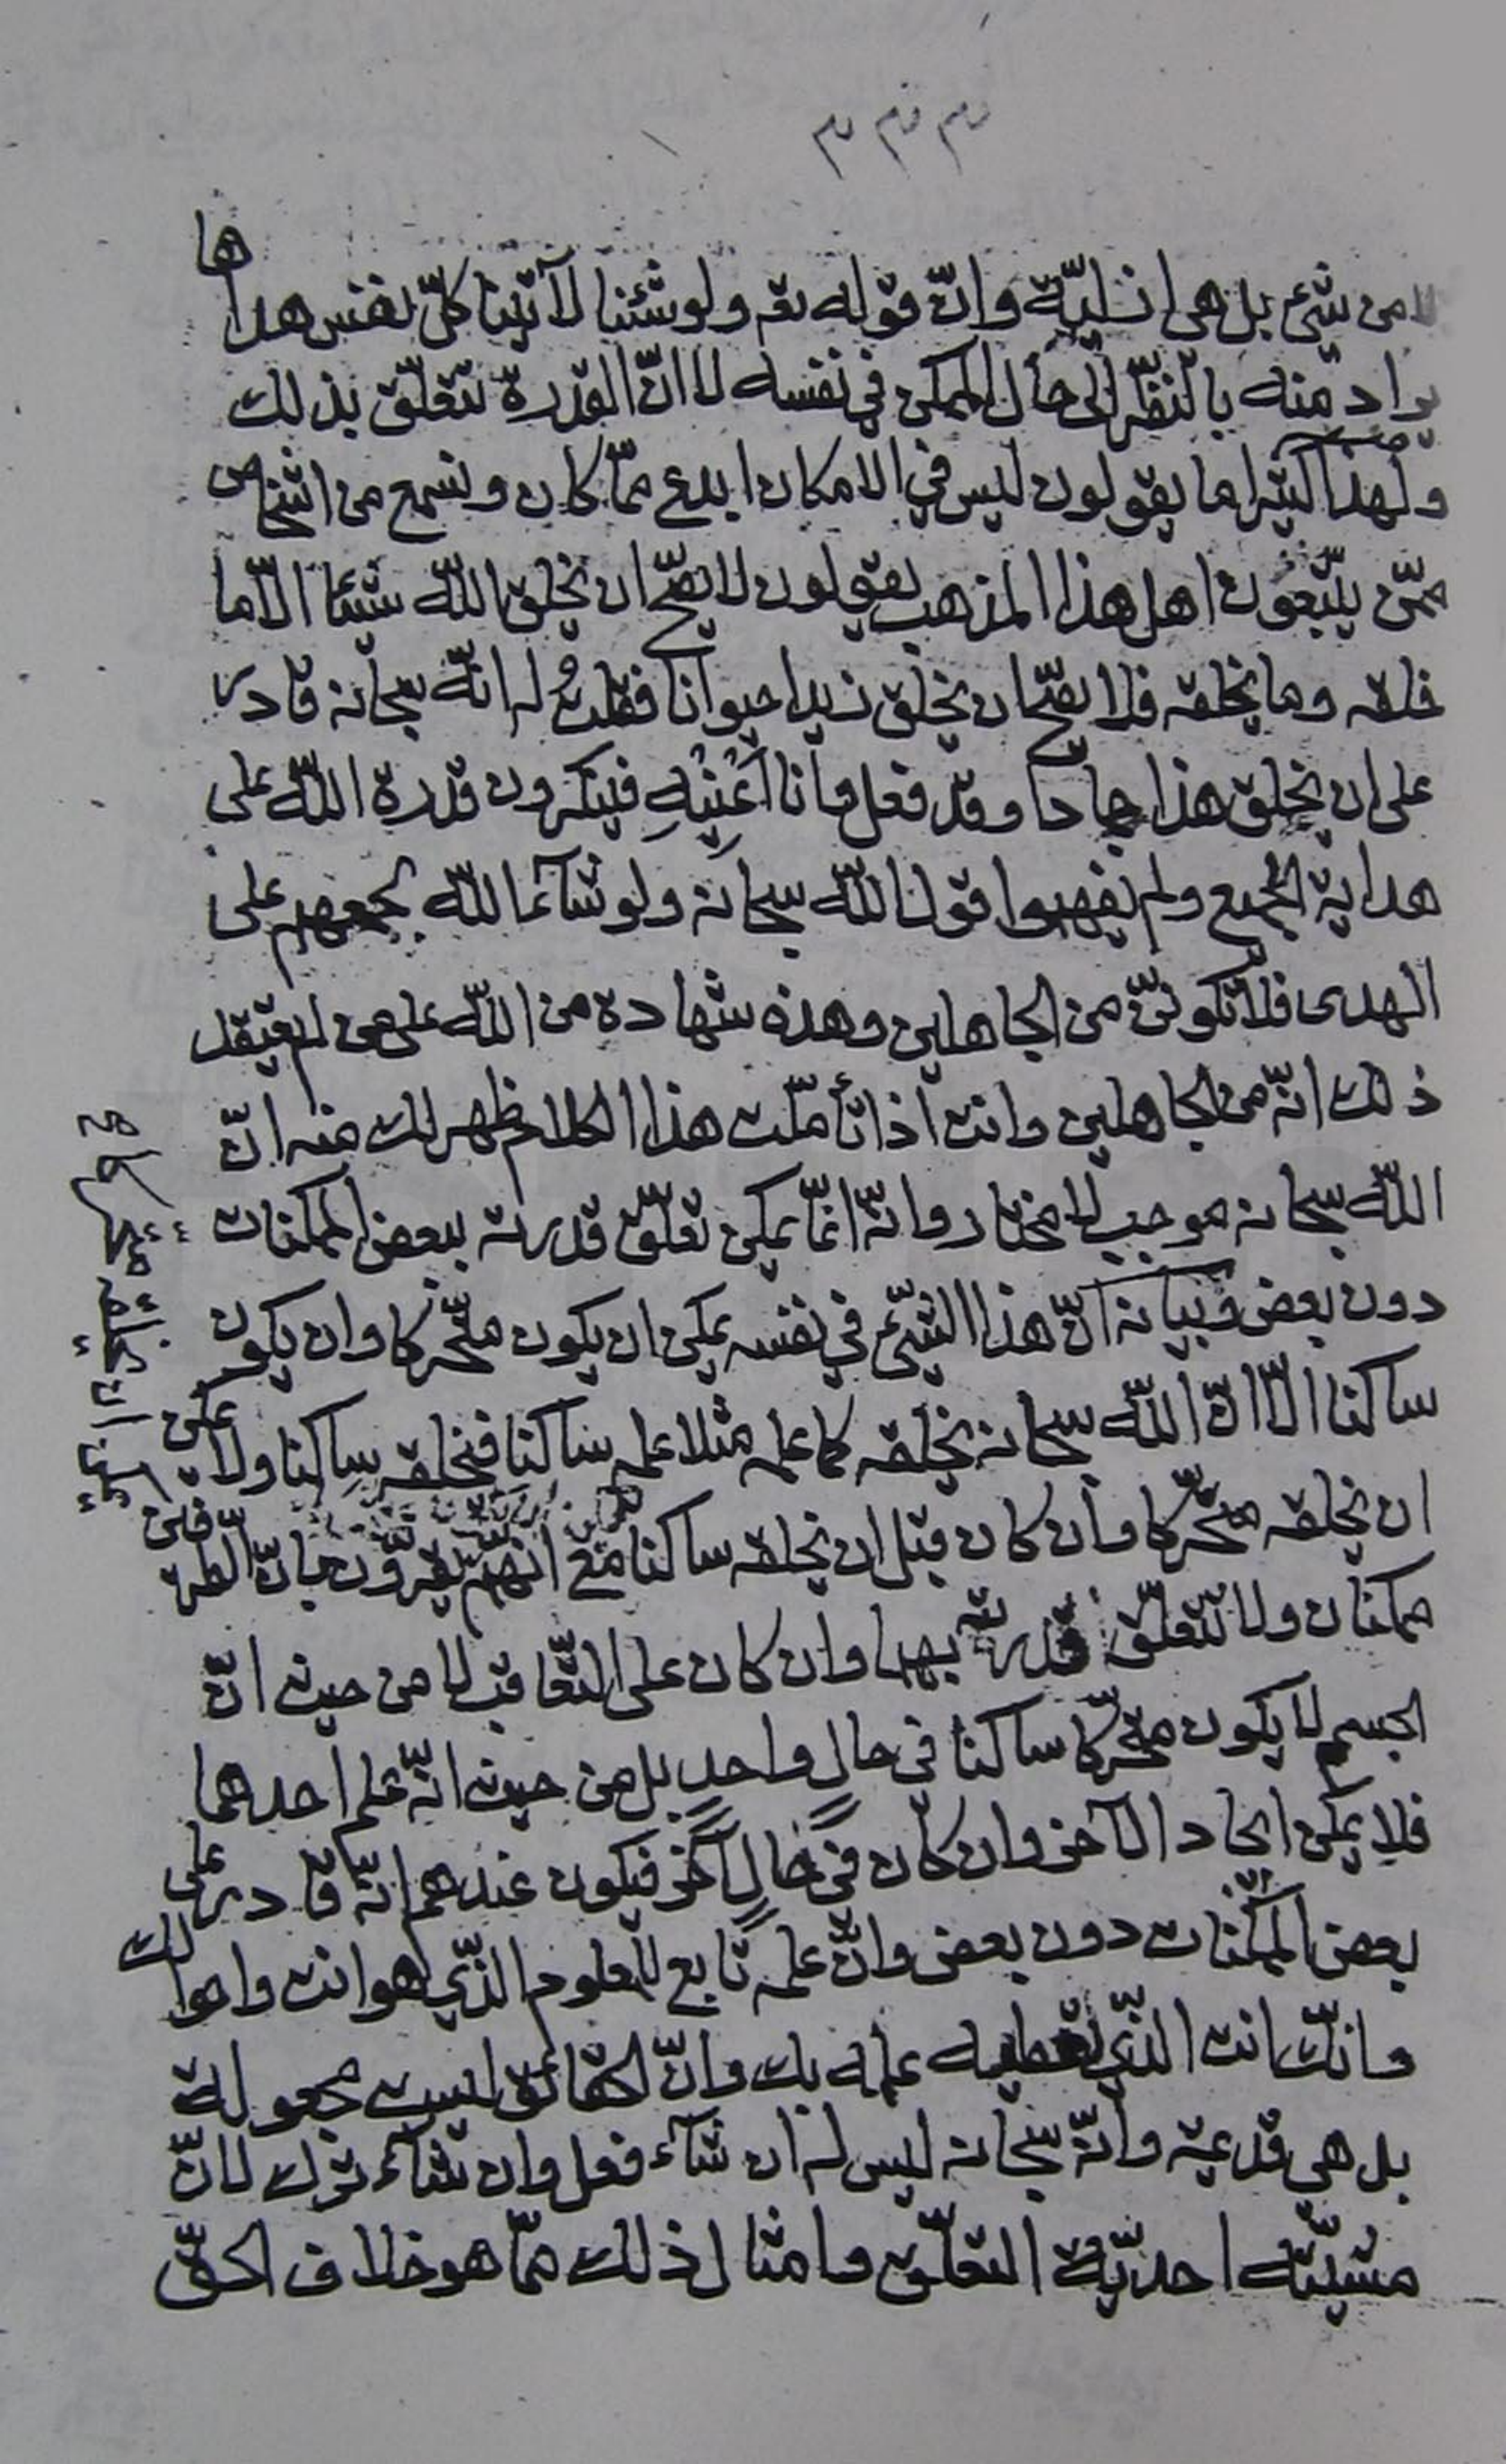 لا من شيء بل هي ازليّة وانّ قوله تع ولو شئنا لآتينا كلّ نفس هداها
يراد منه بالنظر الى حال الممكن في نفسه لا انّ القدرة تتعلّق بذلك
ولهذا كثيرا ما يقولون ليس في الامكان ابدع ممّا كان ونسمع من اشخاص
ممّن يتّبعون اهل هذا المذهب يقولون لا يصحّ ان يخلق اللّه شيئا الّا ما
خلقه وما يخلقه فلا يصحّ ان يخلق زيدا حيوانا فقلتُ له انّه سبحانه قادر
على ان يخلق هذا جمادا وقد فعل وانا اَعْنيْهِ فينكرون قدرة اللّه على
هداية الجميع ولم يفهموا قول اللّه سبحانه ولو شآء اللّه لجمعهم على
الهدى فلا تكوننّ من الجاهلين وهذه شهادة من اللّه على من لم يعتقد
ذلك انّه من الجاهلين وانت اذا تأمّلت هذا الكلام ظهر لك منه انّ
اللّه سبحانه موجب لا مختار وانّه انّما يمكن تعلّق قدرته ببعض الممكنات
دون بعض وبيانه انّ هذا الشيء في نفسه يمكن ان يكون متحّركا وان يكون
ساكنا الّا انّ اللّه سبحانه يخلقه كما علمه مثلا علمه ساكنا فخلقه ساكنا ولا يمكن
ان يخلقه متحّركا وان كان قبل ان يخلقه ساكنا مع انّهم يقرّون بانّ الطرفين
ممكنان ولا تتعلّق قدرته بهما وان كان على التّعاقب لا من حيث انّ
الجسم لا يكون متحّركا ساكنا في حالٍ واحدٍ بل من حيث انّه علم احدهما
فلا يمكن ايجاد الآخر وان كان في حالٍ آخر فيكون عندهم انّه قادر على
بعض الممكنات دون بعض وانّ علمه تابع للمعلوم الذّي هو انت واحوالك
وانّك انت الذّي تعطيه علمه بك وانّ الحقائق ليست مجعولة
بل هي قديمة وانّه سبحانه ليس له ان شآء فعل وان شآء ترك لانّ
مشيّته احديّة التعلّق وامثال ذلك ممّا هو خلاف الحقّ